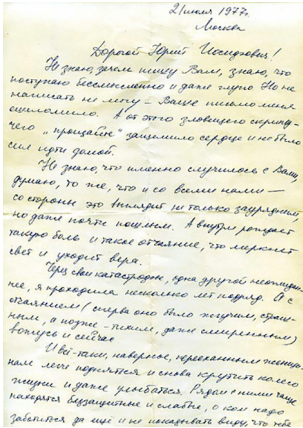 21 июля 1977 г.
Москва
Дорогой Юрий Иосифович!
Не знаю, зачем пишу Вам, знаю, что
поступаю бессмысленно и даже глупо. Но не
написать не могу – Ваше письмо меня
ошеломило. А от этого зловещего скрипу-
чего „прощайте" защемило сердце и не было
сил идти домой.
Не знаю, что именно случилось с Вами,
думаю, то же, что и со всеми нами –
со стороны это выглядит не только заурядным,
но даже почти пошлым. А внутри рождает
такую боль и такое отчаяние, что меркнет
свет и уходит вера.
Через свои катастрофы, одна другой неожидан-
нее, я проходила несколько лет подряд. И с
отчаянием (сперва оно было жгучим, страш-
ным, а позже – тихим, даже смиренным)
вожусь и сейчас.
И всё-таки, наверное, нормальным женщи-
нам легче подняться и снова крутить колесо
жизни и даже улыбаться. Рядом с ними чаще
находятся беззащитные и слабые, о ком надо
заботиться да ещё и не показывать виду, что тебе